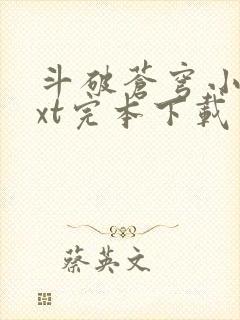 斗破苍穹小
xt完本下载
蔡英文